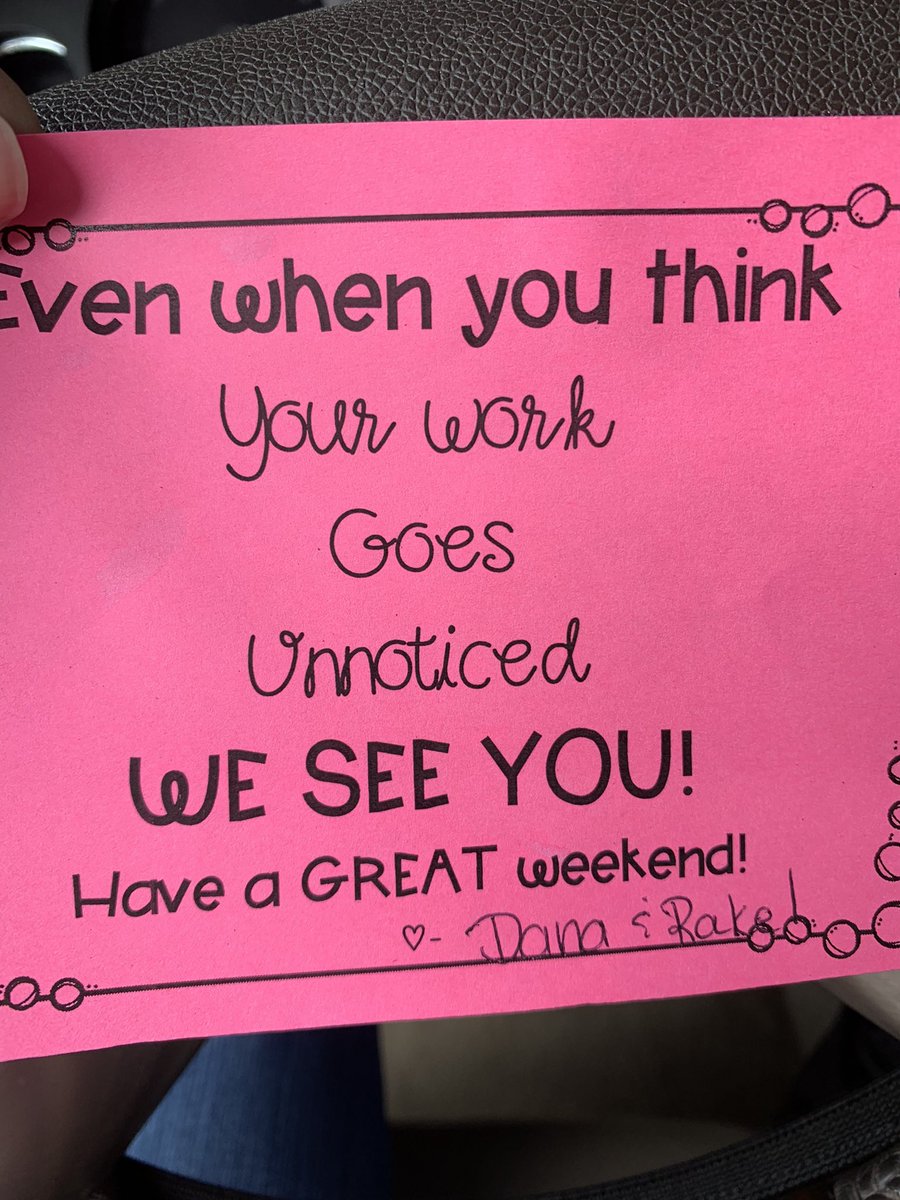 Even when you think
Your work
Goes
Unnoticed
WE SEE YOU!
Have a GREAT weekend!
♡- Dana & Rakel